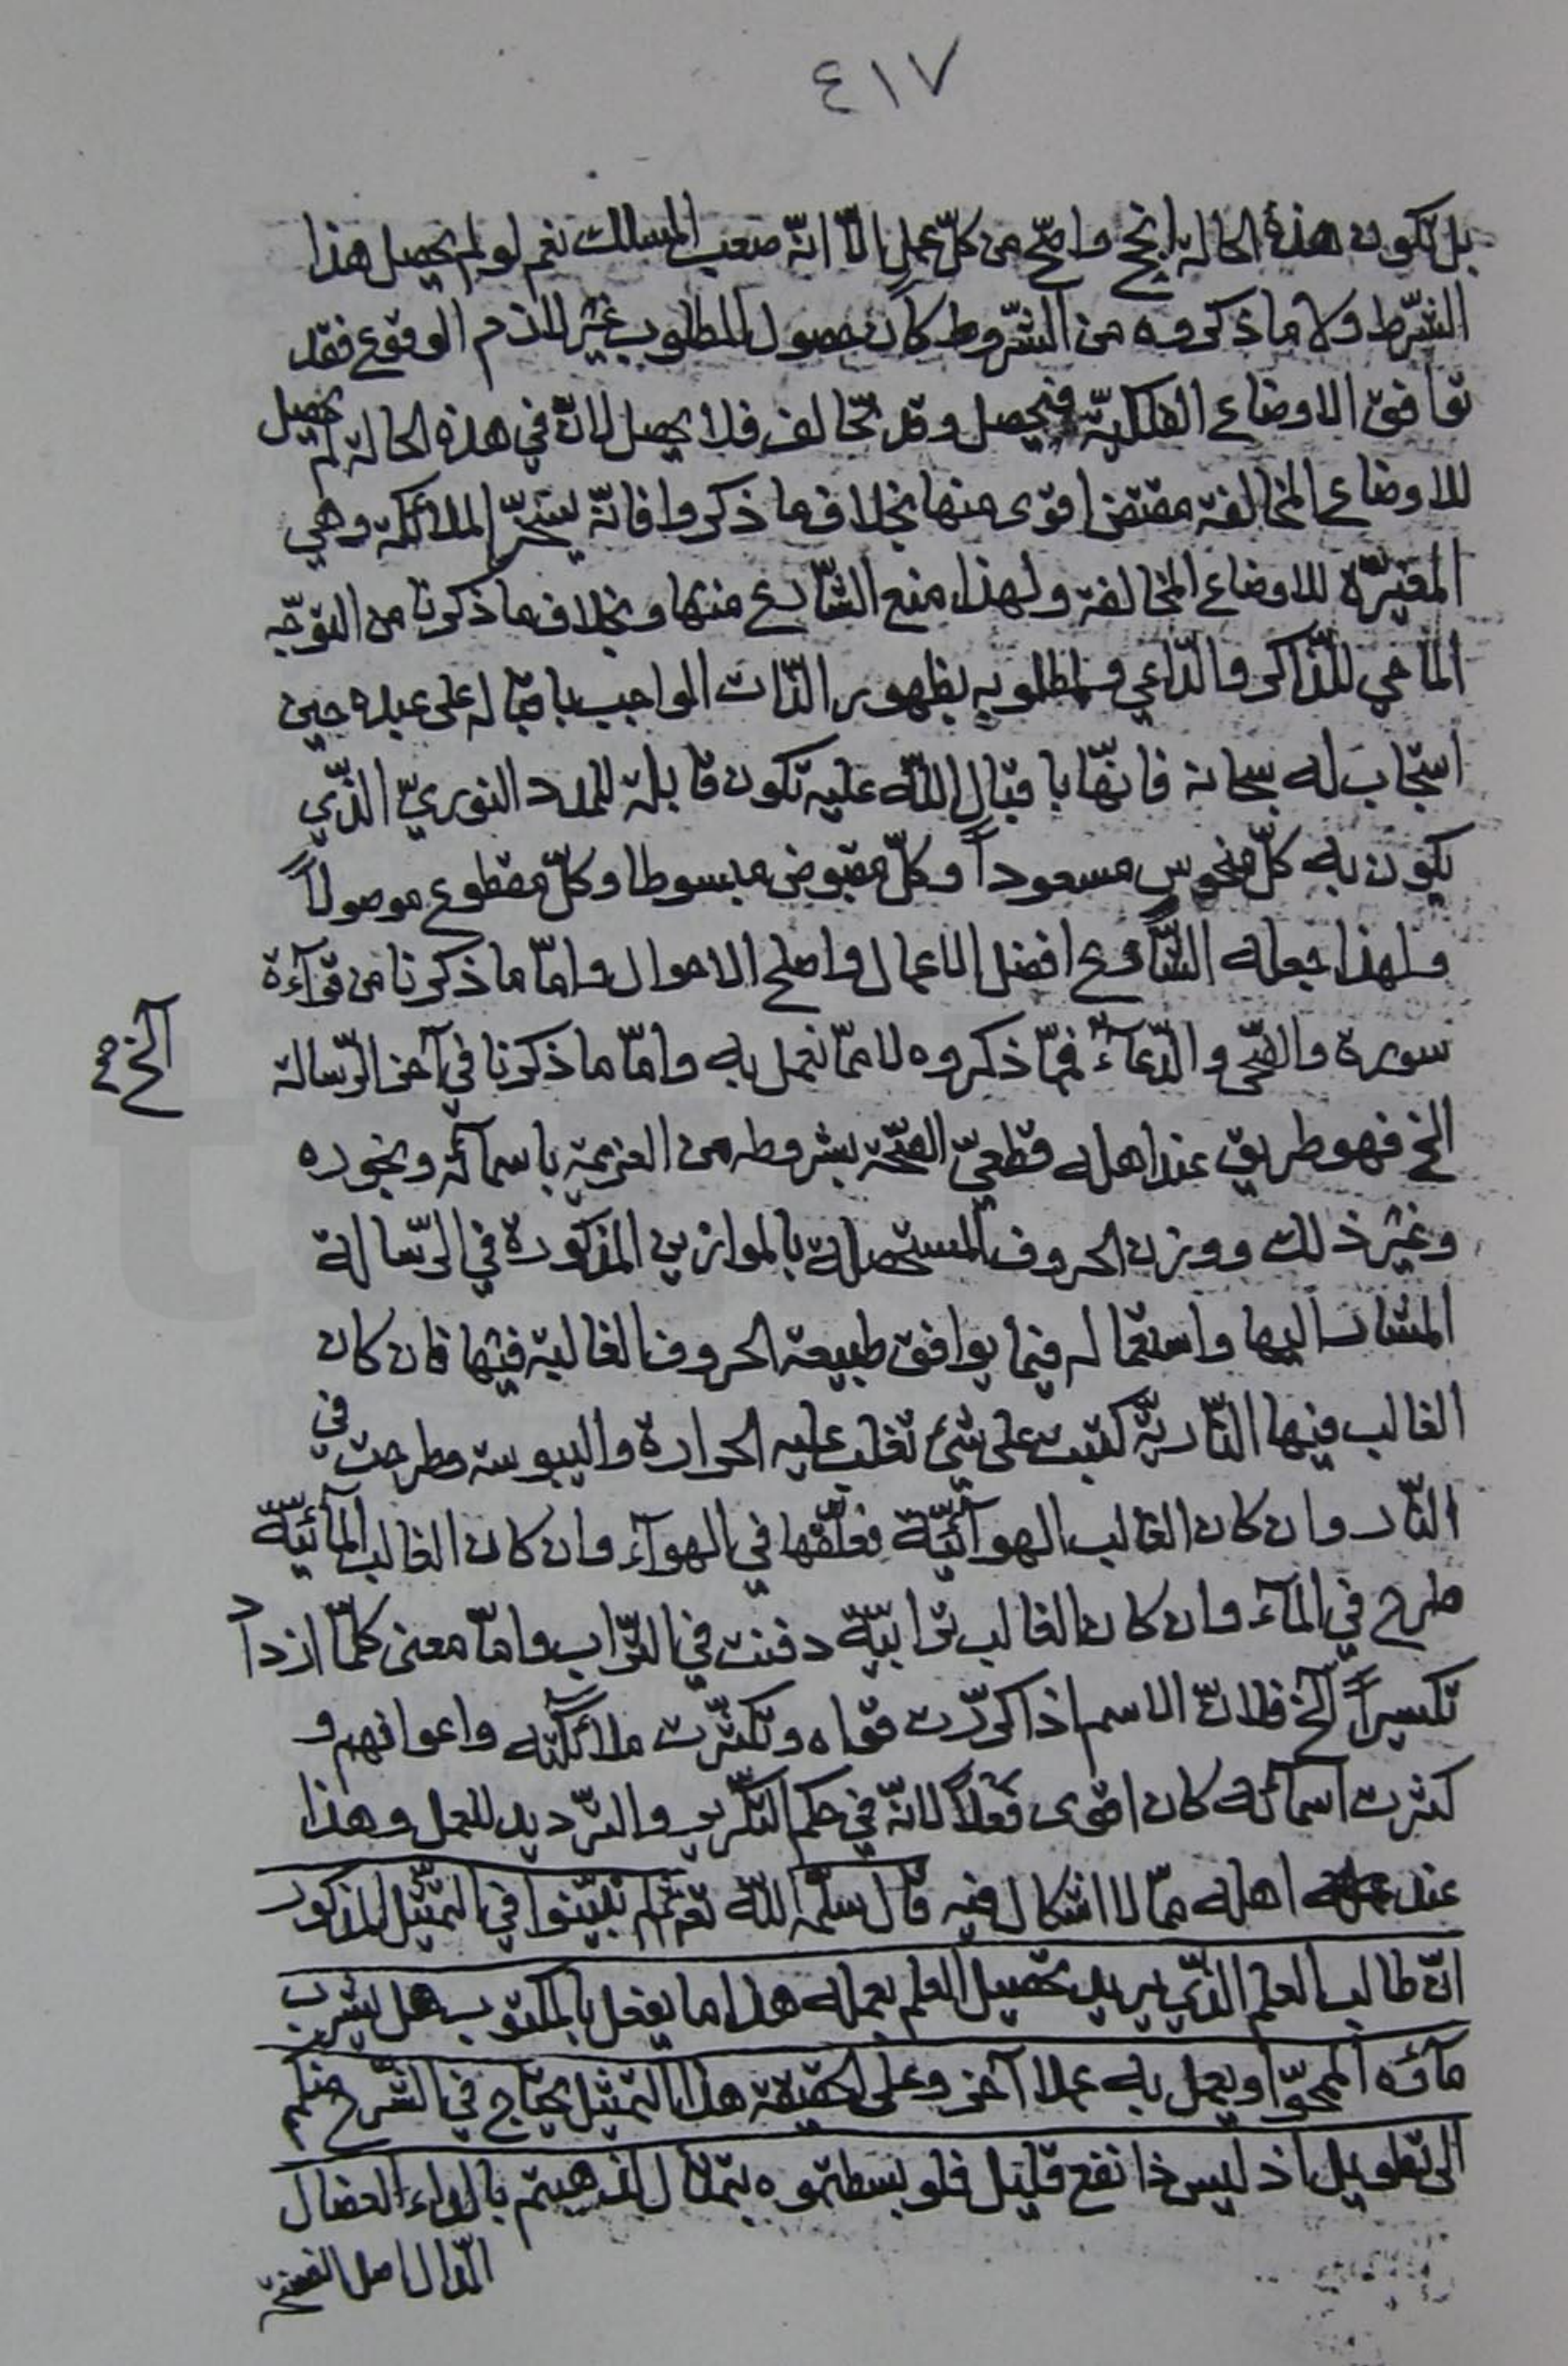 ٤١٧
بل تكون هذه الحالة انجح واصحّ من كلّ عمل الّا انّه صعب المسلك نعم لو لم يحصل هذا
الشّرط ولا ما ذكروه من الشّروط كان حصول المطلوب غير لازم الوقوع فقد
توافق الاوضاع الفلكيّة فيحصل وقد تخالف فلا يحصل لانّ في هذه الحالة لم يحصل
للاوضاع المخالفة مقتض اقوى منها بخلاف ما ذكروا فانّه يسخّر الملائكة وهي
المغيّرة للاوضاع المخالفة ولهذا منع الشّارع منها وبخلاف ما ذكرنا من التوجّه
الماحي للذّاكر والدّاعي ولمطلوبه بظهور الذّات الواجب باقباله على عبده حين
استجاب له سبحانه فانّها باقبال اللّه عليه تكون قابلة للمدد النوريّ الذّي
يكون به كلّ منحوس مسعوداً وكلّ مقبوض مبسوطا وكلّ مقطوع موصولاً
ولهذا جعله الشّارع افضل الاعمال واصلح الاحوال وامّا ما ذكرنا من قرآءة
سورة والضّحى والدّعآء فممّا ذكروه لا ممّا نعمل به وامّا ما ذكرنا في آخر الرّسالة
الخ
الخ فهو طريق عند اهله قطعيّ الصّحّة بشروطه من العزيمة باسمآئه وبخوره
وغير ذلك ووزن الحروف المستحصلة بالموازين المذكورة في الرّسالة
المشار اليها واستعماله فيما يوافق طبيعة الحروف الغالبة فيها فان كان
الغالب فيها النّاريّة كتبت على شيء تغلب عليه الحرارة واليبوسة وطرحت في
النّار وان كان الغالب الهوآئيّة فعلّقها في الهوآء وان كان الغالب المآئيّة
طرح في المآء وان كان الغالب ترابيّة دفنت في التّراب وامّا معنى كلّما ازداد
تكسيراً الخ فلانّ الاسم اذا كرّرت قواه وتكثّرت ملآئكته واعوانهم و
كثرت اسمآئه كان اقوى فعلاً لانّه في حكم التّكرير والتّرديد للعمل وهذا
عند اهله ممّا لا اشكال فيه قال سلّمه اللّه تع ثم تبيّنوا في التمثيل المذكور
انّ طالب العلم الذّي يريد تحصيل العلم بعمله هذا ما يفعل بالمكتوب هل يشرب
مآئه الممحوّ او يعمل به عملا آخر وعلى الحقيقة هذا التمثيل يحتاج في الشّرح منكم
الى تطويل اذ ليس ذا نفع قليل فلو بسطتموه بتمثال لذهبتم بالداء العضال